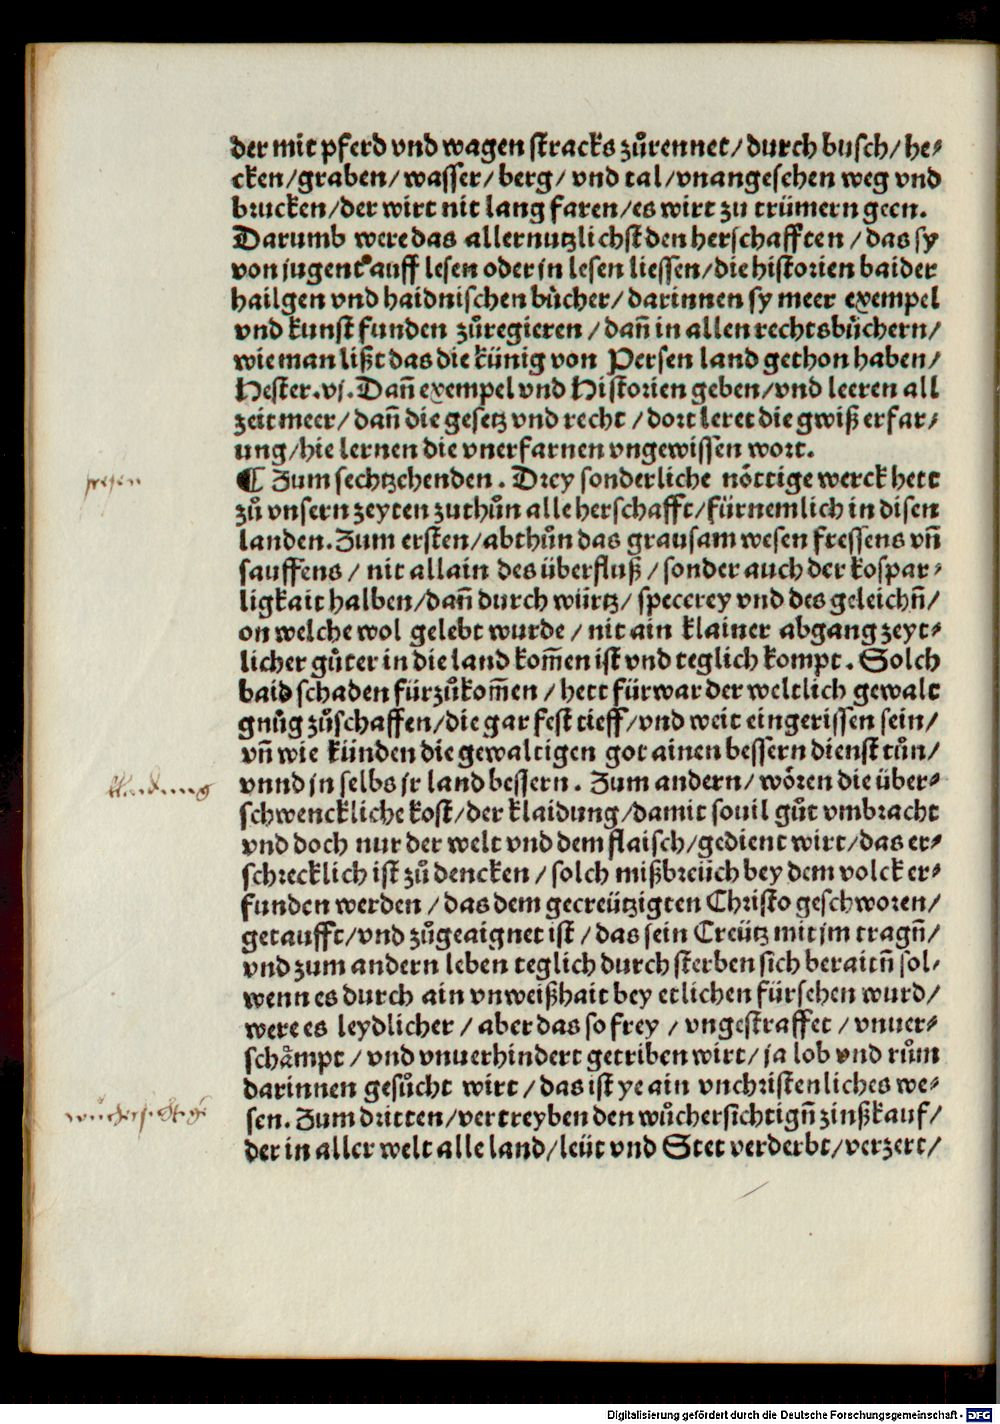 der mit pferd vnd wagen stracks zůrennet/durch busch/he⸗
cken/graben/wasser/berg/ vnd tal/vnangesehen weg vnd
brucken/der wirt nit lang faren/es wirt zu trümern geen.
Darumb were das allernutzlichst den herschafften /das sy
von jugent auff lesen oder jn lesen liessen/die historien baider
hailgen vnd haidnischen bůcher/darinnen sy meer exempel
vnd kunst funden zůregieren /dañ in allen rechtsbůchern/
wie man lißt das die künig von Persen land gethon haben/
Hester.vj. Dañ exempel vnd Historien geben/vnd leeren all
zeit meer/dañ die gesetz vnd recht /dort leret die gwiß erfar⸗
ung/hie lernen die vnerfarnen vngewissen wort.
fressen
¶ Zum sechtzehenden. Drey sonderliche nöttige werck hett
zů vnsern zeyten zuthůn alle herschafft/fürnemlich in disen
landen. Zum ersten/abthůn das grausam wesen fressens vñ
sauffens / nit allain des überfluß /sonder auch der kospar⸗
ligkait halben/dañ durch würtz/ specerey vnd des geleichñ/
on welche wol gelebt wurde / nit ain klainer abgang zeyt⸗
licher gůter in die land kom̃en ist vnd teglich kompt. Solch
baid schaden fürzůkom̃en /hett fürwar der weltlich gewalt
gnůg zůschaffen/die gar fest tieff/vnd weit eingerissen sein/
vñ wie künden die gewaltigen got ainen bessern dienst tůn/
klaidung
vnnd jn selbs jr land bessern. Zum andern/wören die über⸗
schwenckliche kost/der klaidung/damit souil gůt vmbracht
vnd doch nur der welt vnd dem flaisch/gedient wirt/das er⸗
schrecklich ist zů dencken /solch mißbreüch bey dem volck er⸗
funden werden /das dem gecreützigten Christo geschworen/
getaufft/vnd zůgeaignet ist /das sein Creütz mit jm tragñ/
vnd zum andern leben teglich durch sterben sich beraitñ sol⸗
wenn es durch ain vnweißhait bey etlichen fürsehen wurd/
were es leydlicher /aber das so frey /vngestraffet /vnuer⸗
schåmpt /vnd vnuerhindert getriben wirt/ja lob vnd rům
darinnen gesůcht wirt /das ist ye ain vnchristenliches we⸗
sen. Zum dritten/vertreyben den wůchersichtigñ zinßkauf/
der in aller welt alle land/leüt vnd Stet verderbt/verzert/
Digitalisierung gefördert durch die Deutsche Forschungsgemeinschaft - DFG